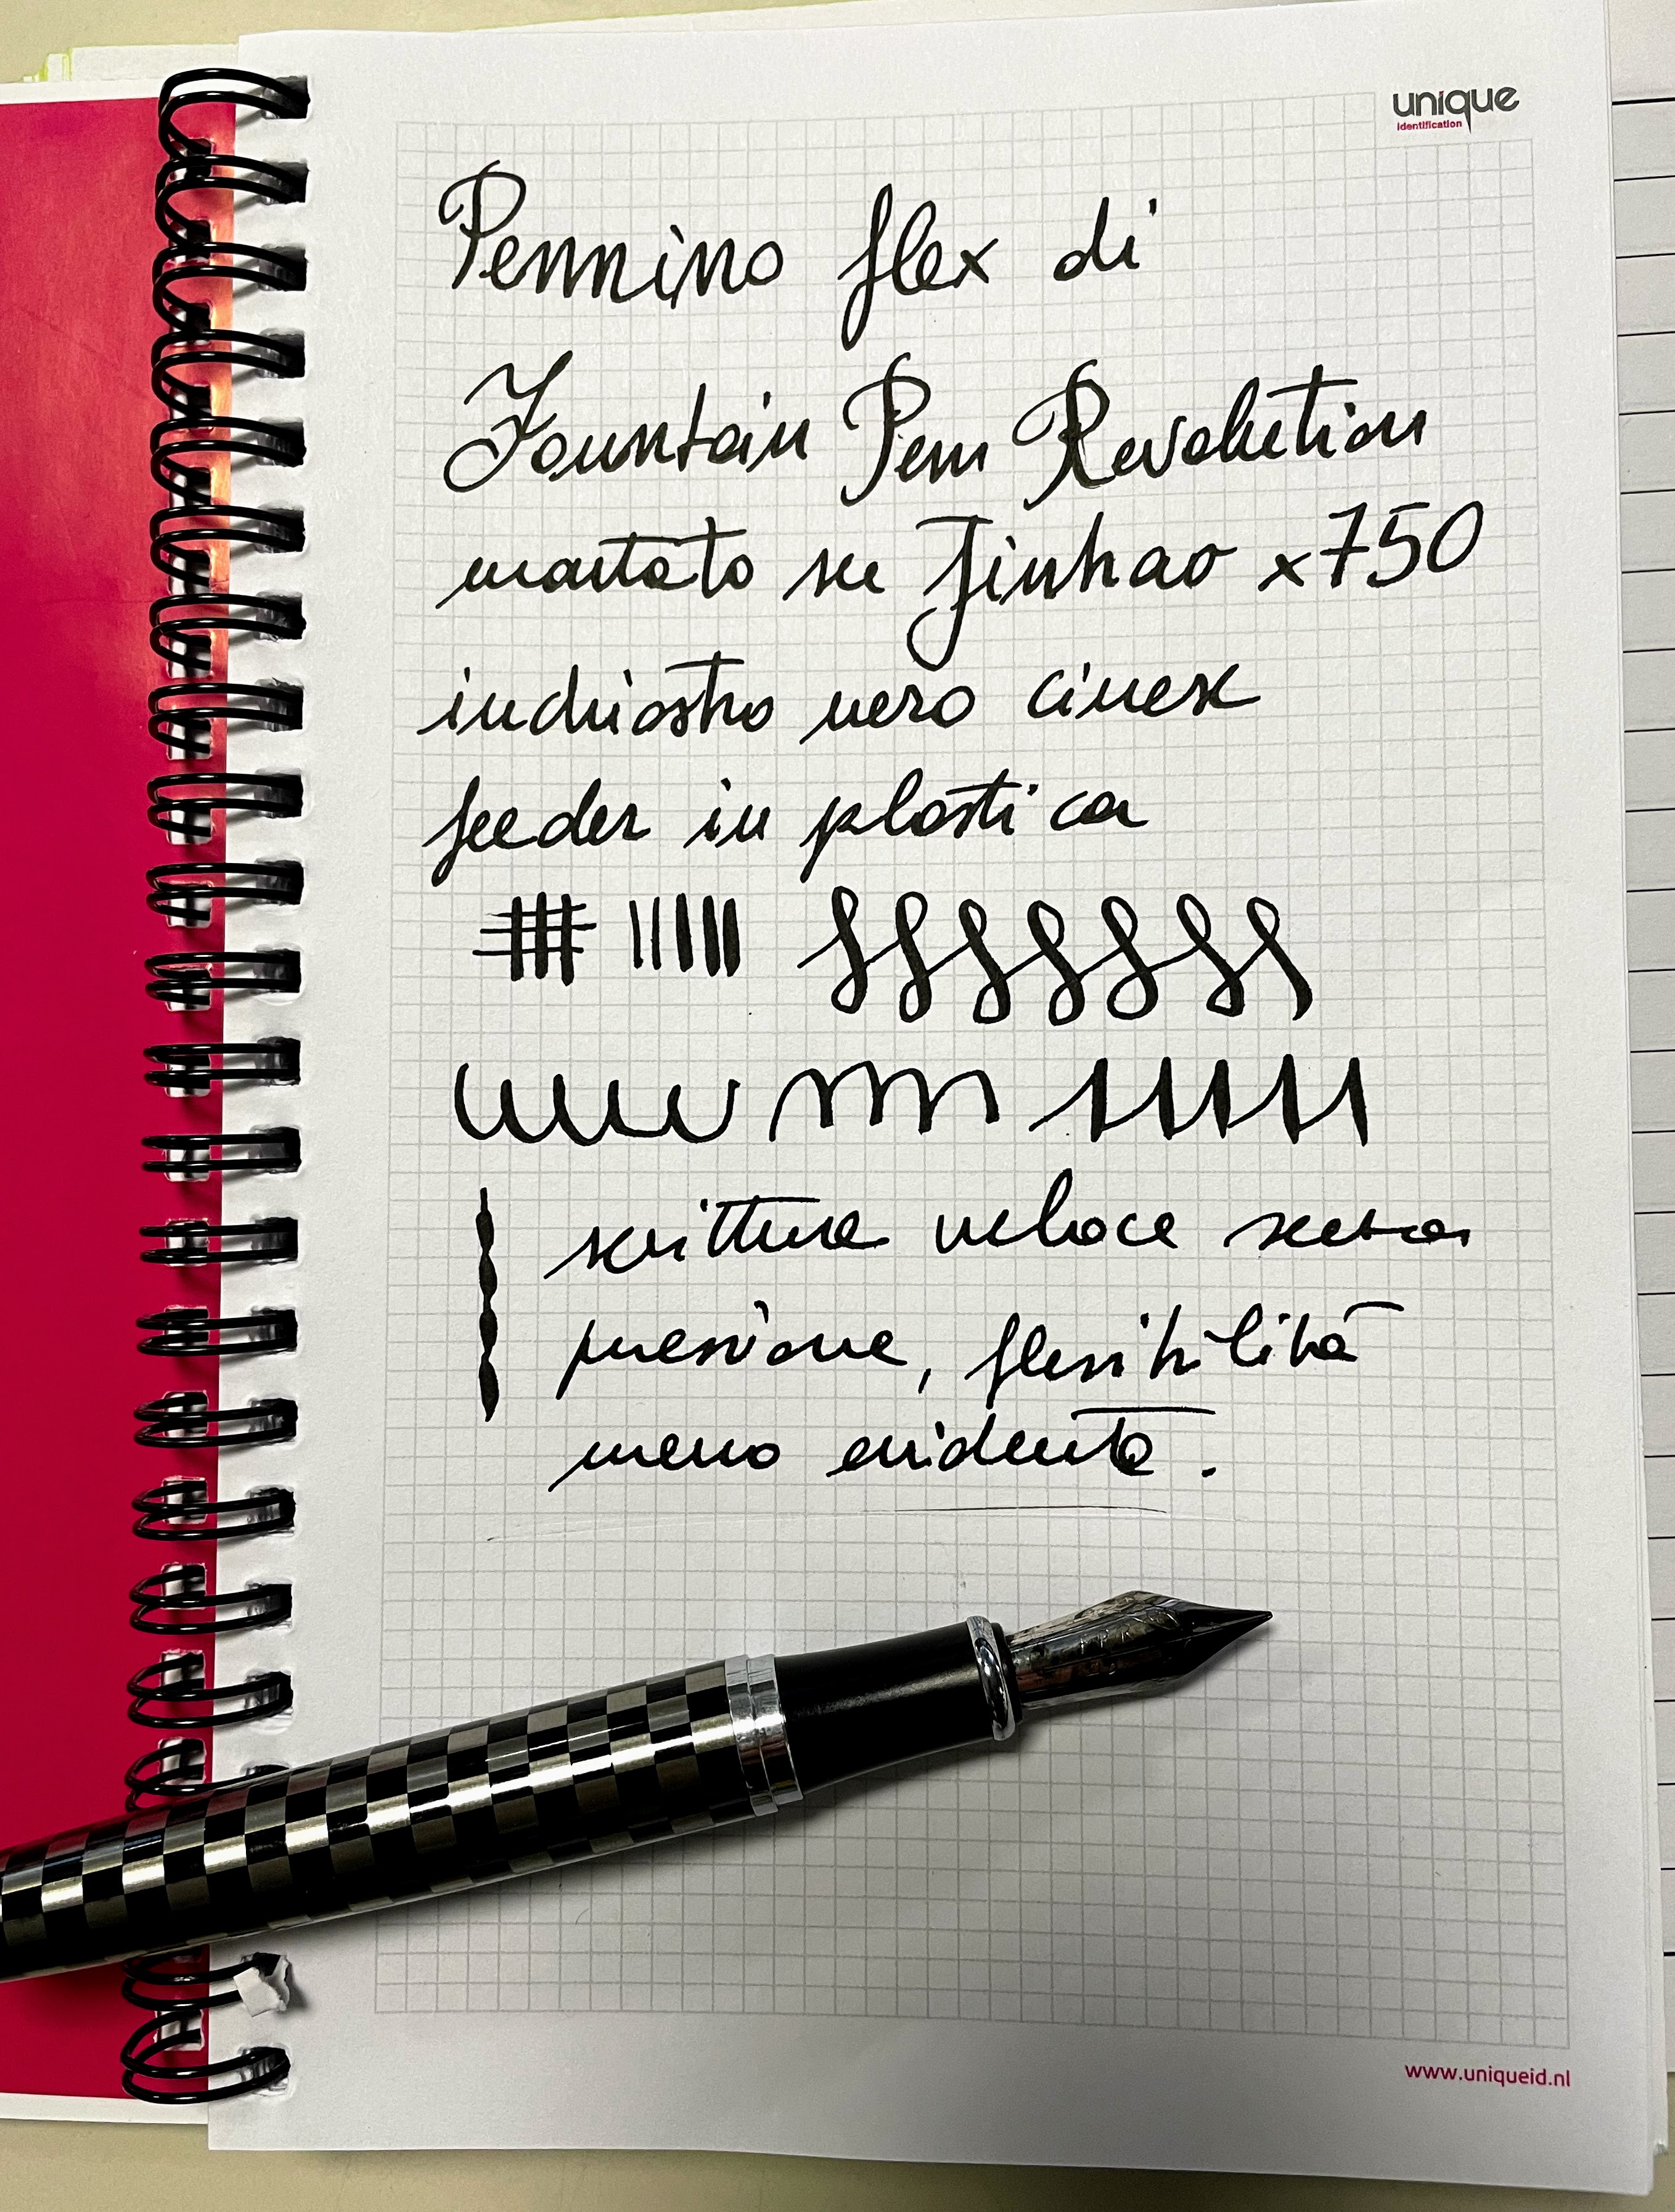 unique
identification
Pennino flex di
Fountain Pen Revolution
montato su Jinhao x750
inchiostro nero cinese
feeder in plastica
scrittura veloce senza
pressione, flessibilità
meno evidente.
www.uniqueid.nl